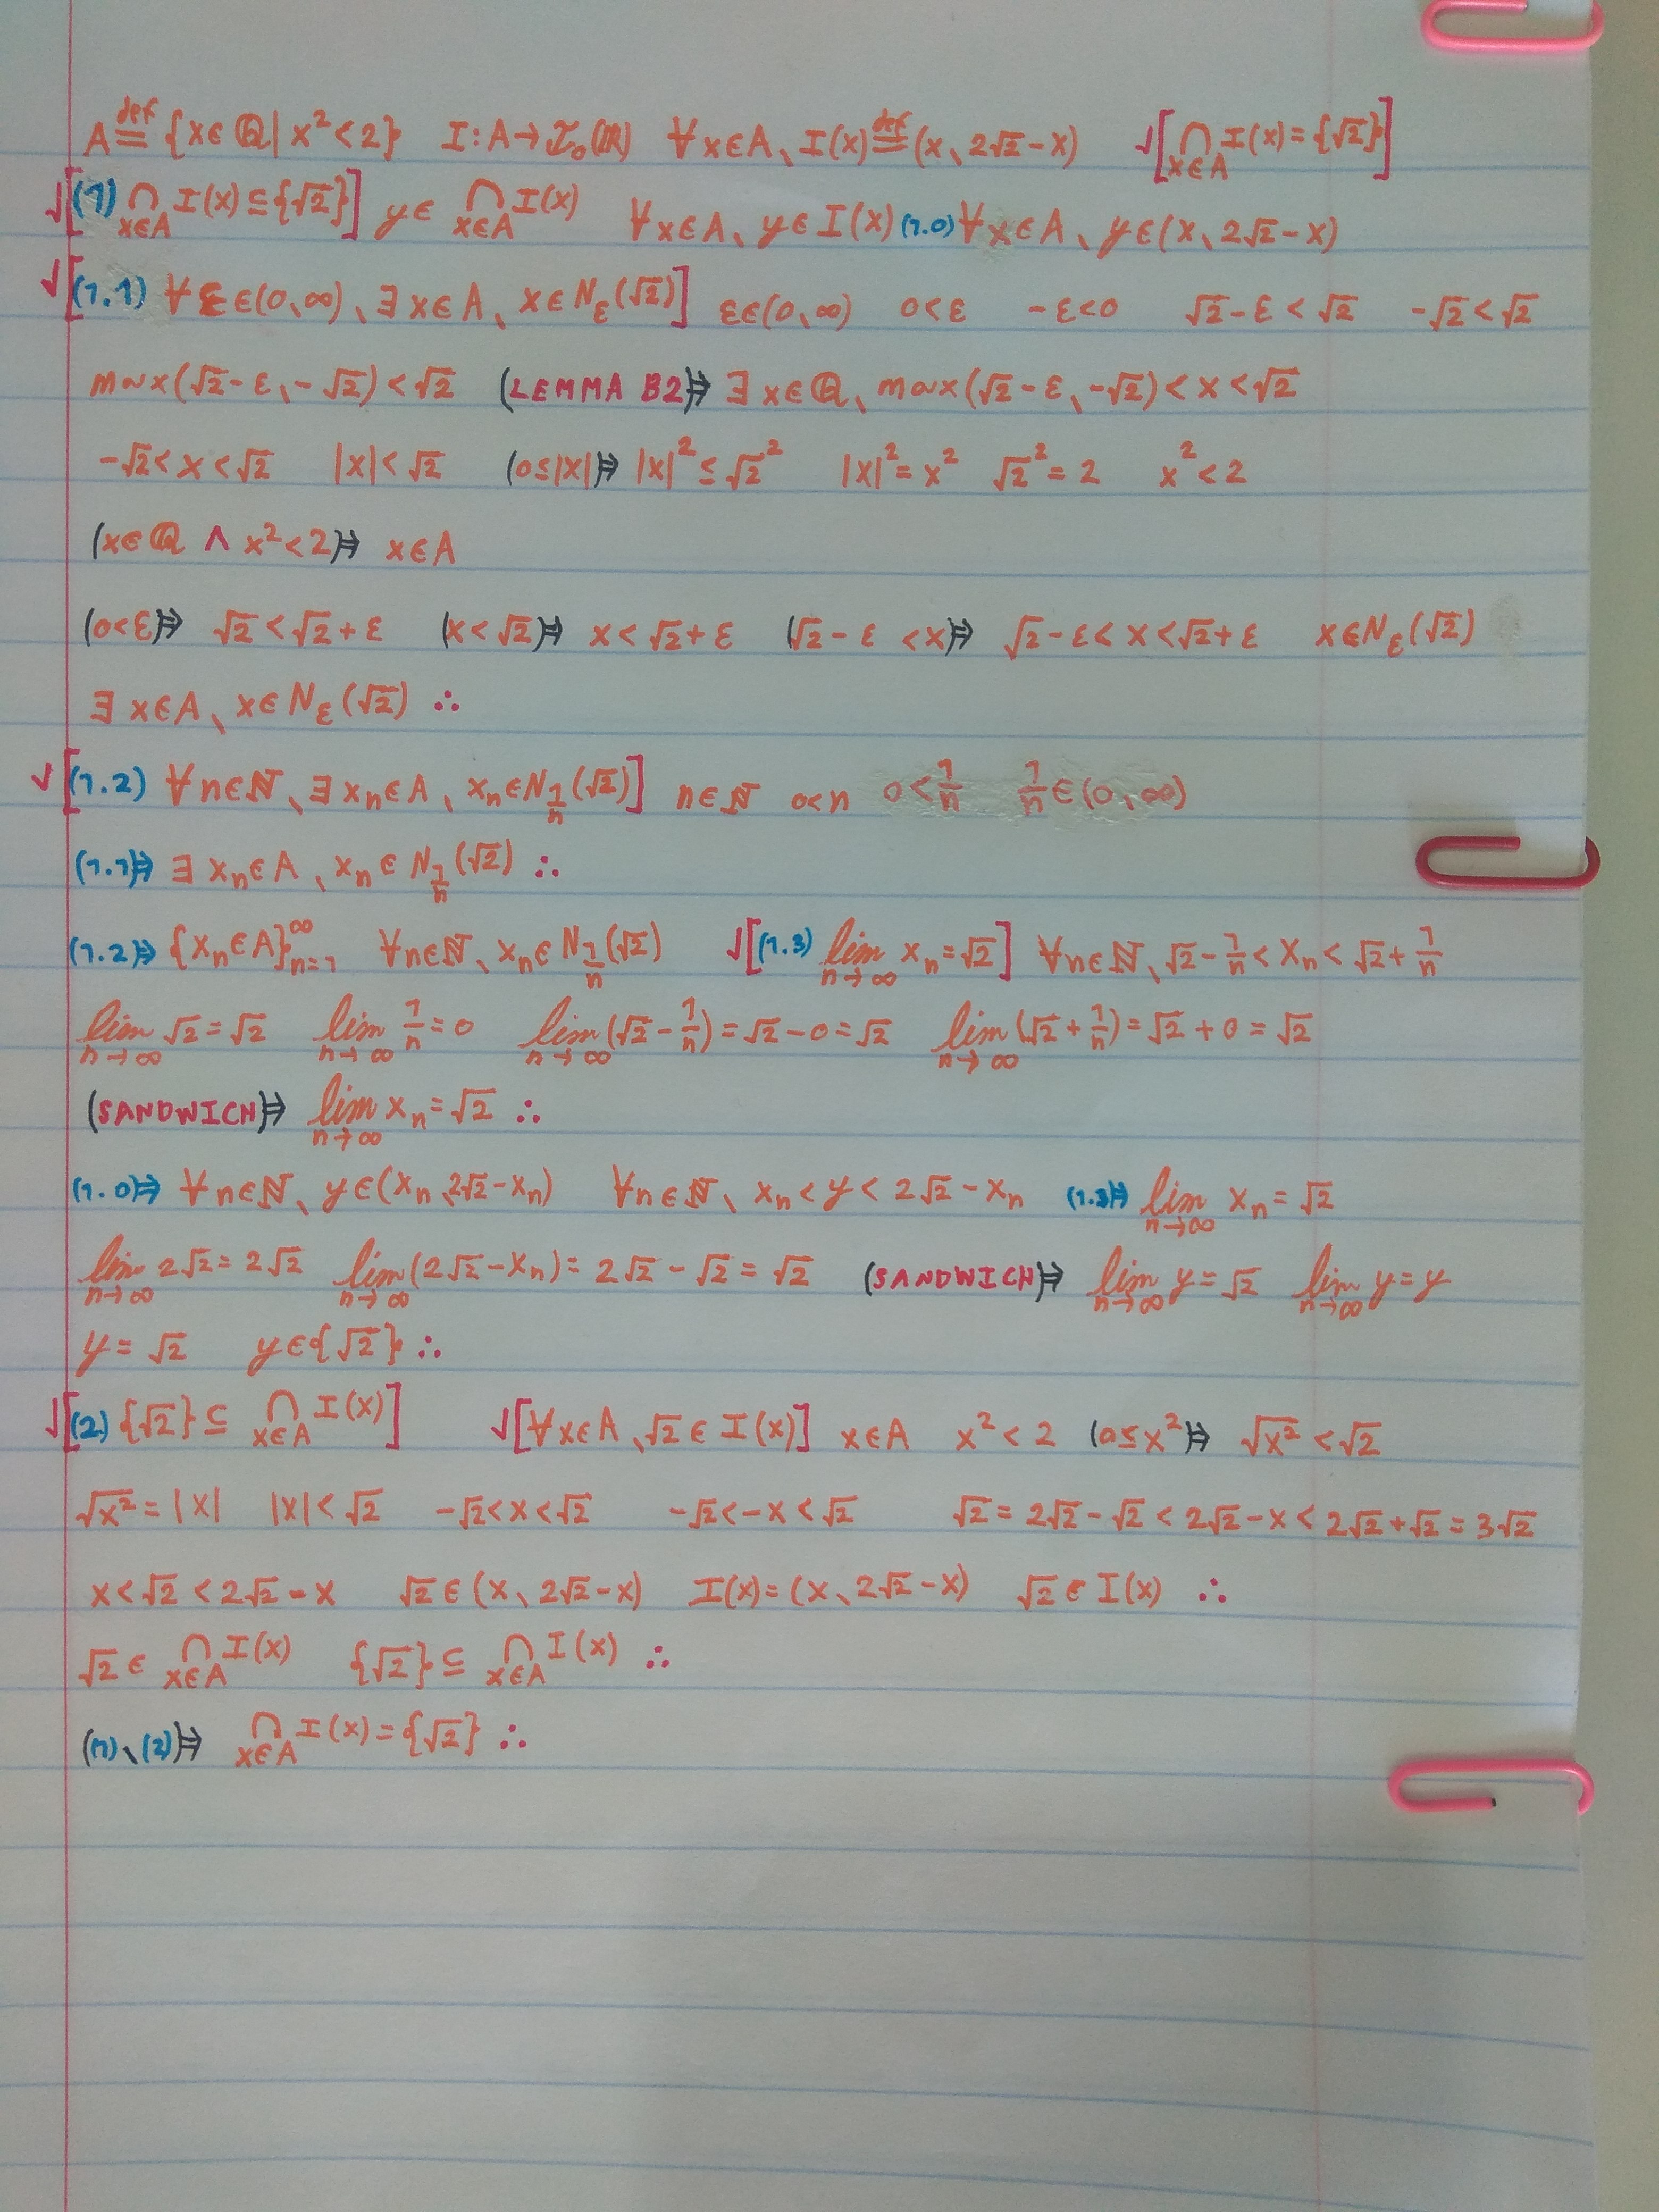 A ≝ {x∈ℚ | x² < 2} I: A→𝓘₀(ℝ) ∀x∈A、I(x) ≝ (x、2√2-x) √[⋂_{x∈A} I(x) = {√2}]
√[(1) ⋂_{x∈A} I(x) ⊆ {√2}] y∈ ⋂_{x∈A} I(x) ∀x∈A、y∈I(x) (1.0) ∀x∈A、y∈(x、2√2-x)
√[(1.1) ∀ε∈(0、∞)、∃x∈A、x∈N_ε(√2)] ε∈(0、∞) 0<ε -ε<0 √2-ε<√2 -√2<√2
max(√2-ε、-√2)<√2 (LEMMA B2)⇒ ∃x∈ℚ、max(√2-ε、-√2)<x<√2
-√2<x<√2 |x|<√2 (0≤|x|)⇒ |x|²≤√2² |x|²=x² √2²=2 x²<2
(x∈ℚ ∧ x²<2)⇒ x∈A
(0<ε)⇒ √2<√2+ε (x<√2)⇒ x<√2+ε (√2-ε<x)⇒ √2-ε<x<√2+ε x∈N_ε(√2)
∃x∈A、x∈N_ε(√2) ∴
√[(1.2) ∀n∈ℕ、∃x_n∈A、x_n∈N_{1/n}(√2)] n∈ℕ 0<n 0<1/n 1/n∈(0、∞)
(1.1)⇒ ∃x_n∈A、x_n∈N_{1/n}(√2) ∴
(1.2)⇒ {x_n∈A}_{n=1}^∞ ∀n∈ℕ、x_n∈N_{1/n}(√2) √[(1.3) lim_{n→∞} x_n=√2] ∀n∈ℕ、√2-1/n<x_n<√2+1/n
lim_{n→∞} √2=√2 lim_{n→∞} 1/n=0 lim_{n→∞}(√2-1/n)=√2-0=√2 lim_{n→∞}(√2+1/n)=√2+0=√2
(SANDWICH)⇒ lim_{n→∞} x_n=√2 ∴
(1.0)⇒ ∀n∈ℕ、y∈(x_n、2√2-x_n) ∀n∈ℕ、x_n<y<2√2-x_n (1.3)⇒ lim_{n→∞} x_n=√2
lim_{n→∞} 2√2=2√2 lim_{n→∞}(2√2-x_n)=2√2-√2=√2 (SANDWICH)⇒ lim_{n→∞} y=√2 lim_{n→∞} y=y
y=√2 y∈{√2} ∴
√[(2) {√2} ⊆ ⋂_{x∈A} I(x)] √[∀x∈A、√2∈I(x)] x∈A x²<2 (0≤x²)⇒ √x²<√2
√x²=|x| |x|<√2 -√2<x<√2 -√2<-x<√2 √2=2√2-√2<2√2-x<2√2+√2=3√2
x<√2<2√2-x √2∈(x、2√2-x) I(x)=(x、2√2-x) √2∈I(x) ∴
√2∈ ⋂_{x∈A} I(x) {√2} ⊆ ⋂_{x∈A} I(x) ∴
(1)、(2)⇒ ⋂_{x∈A} I(x)={√2} ∴